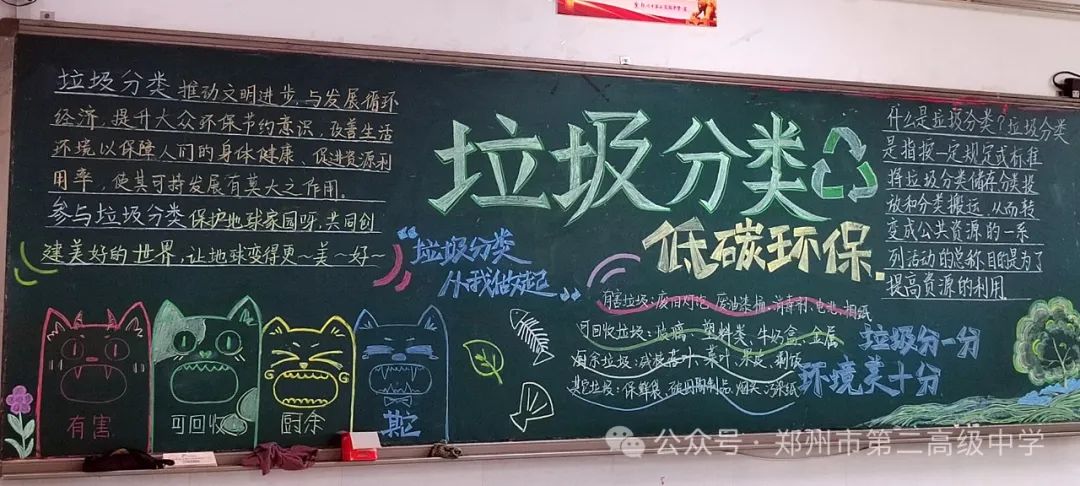 垃圾分类推动文明进步,与发展循环
经济,提升大众环保节约意识,改善生活
环境以保障人们的身体健康、促进资源利
用率,使其可持发展有莫大之作用。
参与垃圾分类保护地球家园呀,共同创
建美好的世界,让地球变得更~美~好~
垃圾分类
低碳环保.
“垃圾分类
从我做起”
什么是垃圾分类?垃圾分类
是指按一定规定或标准
将垃圾分类储存分类投
放和分类搬运,从而转
变成公共资源的一系
列活动的总称.目的是为了
提高资源的利用
有害垃圾:废旧灯泡、废油漆桶、消毒剂、电池、相纸
可回收垃圾:玻璃、塑料类、牛奶盒、金属
厨余垃圾:茶叶、菜叶、果皮、剩饭
其它垃圾:保鲜袋、破旧陶制品、烟头、污染纸
垃圾分一分
环境美十分
有害
可回收
厨余
其它
公众号·郑州市第二高级中学